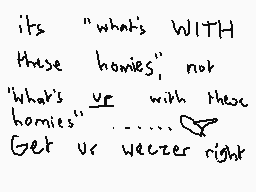 its "what's WITH
these homies", not
"what's up with these
homies" ......
Get ur weezer right